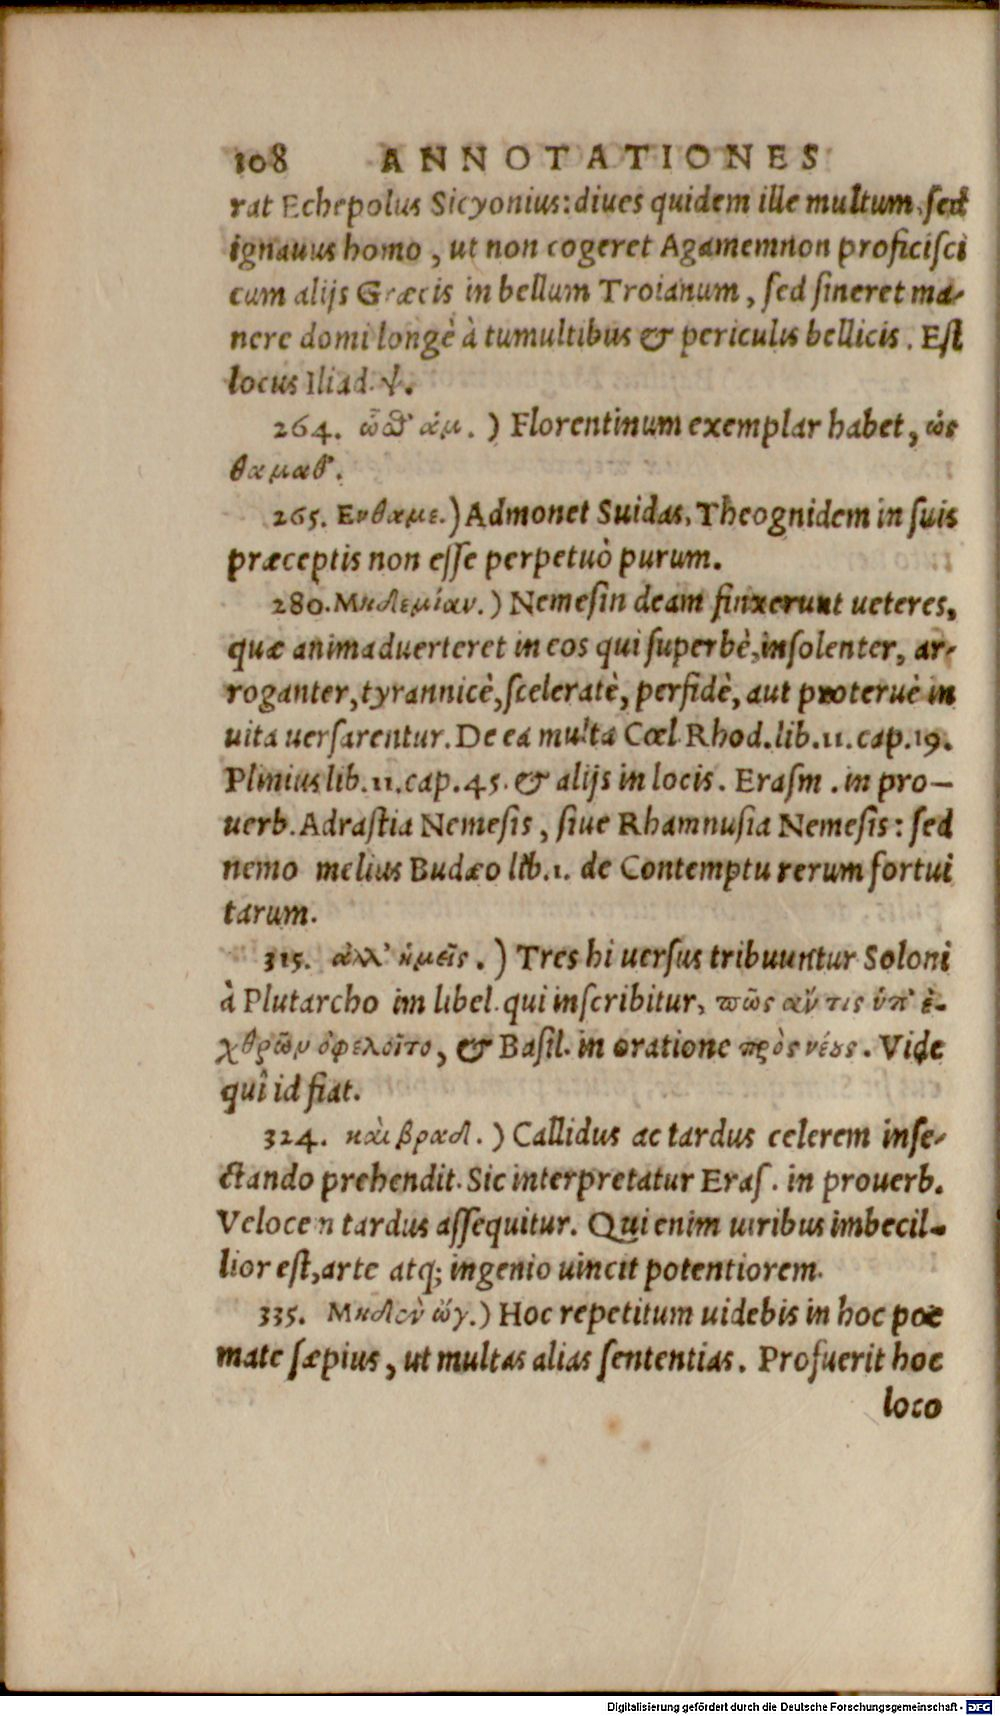 108 ANNOTATIONES
rat Echepolus Sicyonius: diues quidem ille multum, sed
ignauus homo, ut non cogeret Agamemnon proficisci
cum alijs Græcis in bellum Troianum, sed sineret ma-
nere domi longè à tumultibus & periculis bellicis. Est
locus Iliad. ψ.
264. ἀμ.) Florentinum exemplar habet, ὡς
θαμαθ'.
265. Ενθαμε.) Admonet Suidas, Theognidem in suis
præceptis non esse perpetuò purum.
280. Μηδεμίαν.) Nemesin deam finxerunt ueteres,
quæ animaduerteret in eos qui superbè, insolenter, ar-
roganter, tyrannicè, sceleratè, perfidè, aut proteruè in
uita uersarentur. De ea multa Cœl. Rhod. lib. 11. cap. 19.
Plinius lib. 11. cap. 45. & alijs in locis. Erasm. in pro-
uerb. Adrastia Nemesis, siue Rhamnusia Nemesis: sed
nemo melius Budæo lib. 1. de Contemptu rerum fortui
tarum.
315. ἀλλ' ἡμεῖς.) Tres hi uersus tribuuntur Soloni
à Plutarcho im libel. qui inscribitur, πῶς ἄν τις ὑπ' ἐ-
χθρῶν ὀφελοῖτο, & Basil. in oratione πρὸς νέους. Vide
quî id fiat.
324. καὶ βραδ.) Callidus ac tardus celerem inse-
ctando prehendit. Sic interpretatur Eras. in prouerb.
Velocem tardus assequitur. Qui enim uiribus imbecil-
lior est, arte atq; ingenio uincit potentiorem.
335. Μηδὲν ἄγ.) Hoc repetitum uidebis in hoc poe
mate sæpius, ut multas alias sententias. Profuerit hoc
loco
Digitalisierung gefördert durch die Deutsche Forschungsgemeinschaft - DFG